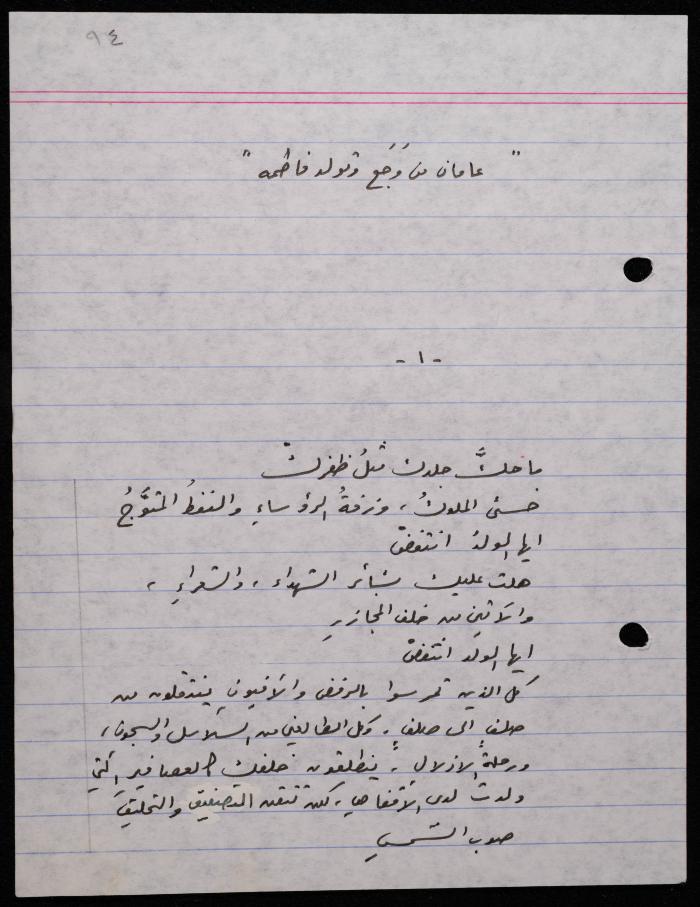 ٩٤
" عامان من وَجَع وتولد فاطمه "
- ١ -
ما حكَّ جلدك مثلُ ظفركْ
خسئ الملوكُ، وزفةُ الرؤساءِ والنفطُ المتوَّجُ
ايها الولدُ انتفضْ
هلت عليك بشائر الشهداء، والشعراءِ،
والآتين من خلف المجازرِ
ايها الولد انتفضْ
كل الذين تمرسوا بالرفض والأفيونِ ينتقلون من
صلفٍ الى صلفٍ، وكل الطالعين من السلاسل والسجون،
ورحلةِ الإذلالِ، ينطلقون خلفك كالعصافير التي
ولدت لدى الأقفاصِ، كي تتقن التصفيق والتحليقَ
صوب الشمسِ